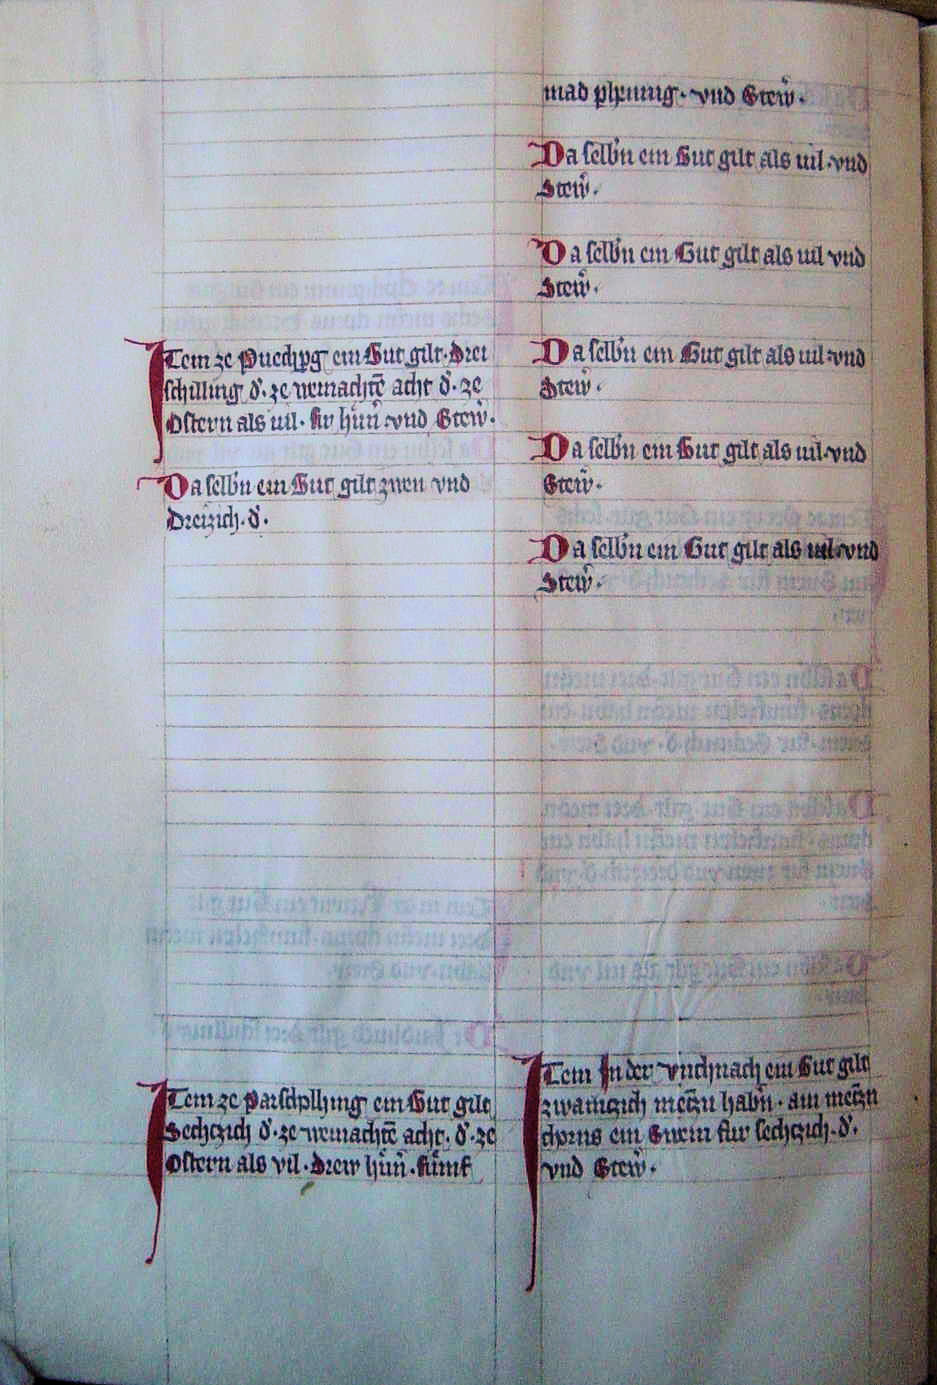 Item ze Puechpg ein Gut gilt · Drei
schilling d̄ · ze weinachtē acht d̄ · ze
Ostern als uil · fir hůn̄ · vnd Stew̄ ·
Da selbn̄ ein Gut gilt zwen vnd
Dreizich · d̄ ·
Item ze ein Gut gilt
Sechtzich d̄ · ze weinachtē acht · d̄ · ze
Ostern als vil · Drew hůn̄ · fůmf
mad phening · vnd Stew̄ ·
Da selbn̄ ein Gut gilt als uil · vnd
Stew̄ ·
Da selbn̄ ein Gut gilt als uil vnd
Stew̄ ·
Da selbn̄ ein Gut gilt als uil vnd
Stew̄ ·
Da selbn̄ ein Gut gilt als uil · vnd
Stew̄ ·
Da selbn̄ ein Gut gilt als uil · vnd
Stew̄ ·
Item In der vischnach ein Gut gilt
zwaintzich metzn̄ habn̄ · ain metzn̄
chorns ein Swein fur sechtzich · d̄ ·
vnd Stew̄ ·